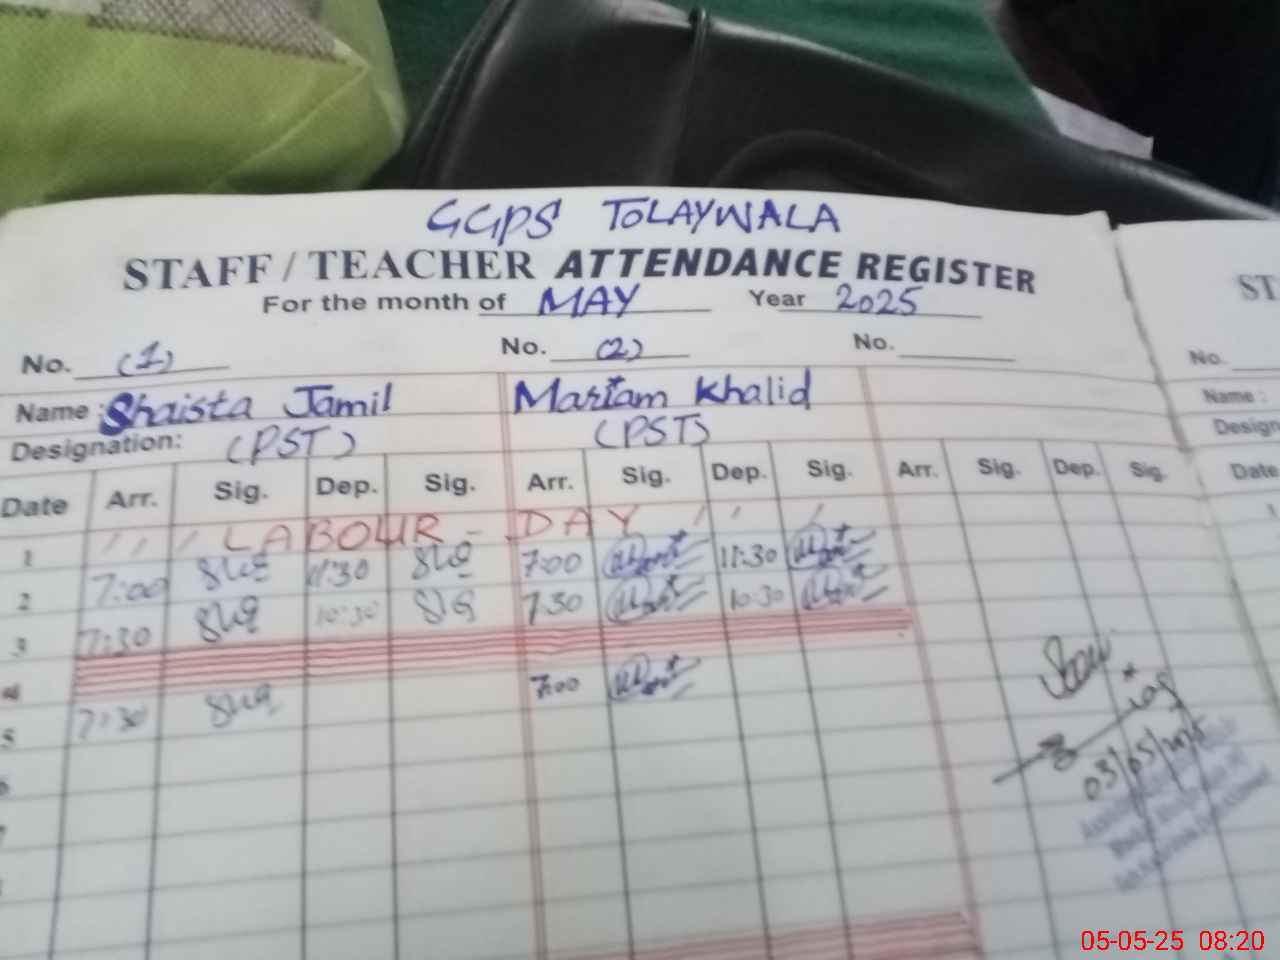 GGPS TOLAYWALA
STAFF / TEACHER ATTENDANCE REGISTER
For the month of MAY Year 2025
No. (1) No. (2) No.
Name : Shaista Jamil Mariam Khalid
Designation: (PST) (PST)
Date Arr. Sig. Dep. Sig. Arr. Sig. Dep. Sig. Arr. Sig. Dep. Sig.
1 LABOUR - DAY
2 7:00 11:30 7:00 11:30
3 7:30 10:30 7:30 10:30
4
5 7:30 7:00
03/05/2025
ST
No.
Name :
Design
Date
1
05-05-25 08:20